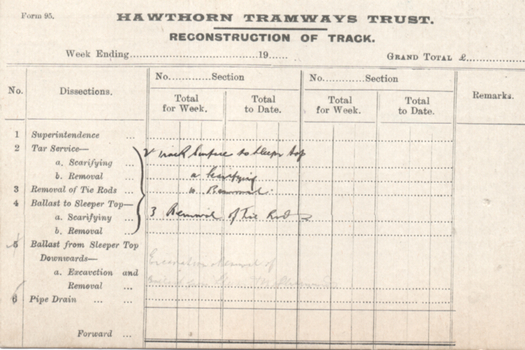 Form 95.
HAWTHORN TRAMWAYS TRUST.
RECONSTRUCTION OF TRACK.
Week Ending..............................19..... GRAND TOTAL £..........
No. Dissections. No...........Section No...........Section Remarks.
Total for Week. Total to Date. Total for Week. Total to Date.
1 Superintendence ...
2 Tar Service—
a. Scarifying ...
b. Removal ...
3 Removal of Tie Rods ...
4 Ballast to Sleeper Top—
a. Scarifying ...
b. Removal ...
5 Ballast from Sleeper Top
Downwards—
a. Excavction and
Removal ...
6 Pipe Drain ... ...
Forward ...
2 track surface to sleeper top
a Scarifying
b. Removal
3 Removal of Tie Rods
Excavation & Removal of